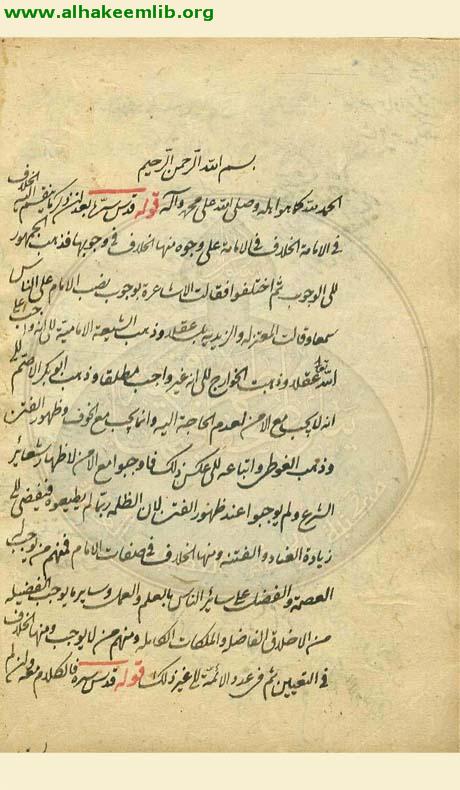 www.alhakeemlib.org
بسم الله الرحمن الرحيم
الحمد لله كما هو اهله وصلى الله على محمد وآله قوله قدس سره الخلاف
في الامامة الخلاف في الامامة على وجوه منها الخلاف في وجوبها فذهب الجمهور
الى الوجوب ثم اختلفوا فقالت الاشاعرة بوجوب نصب الامام على الناس
سمعا وقالت المعتزله والزيديه بل عقلا وذهبت الشيعة الامامية الى انه واجب على
الله تعالى عقلا وذهبت الخوارج الى انه غير واجب مطلقا وذهب ابو بكر الاصم الى
انه لا يجب مع الامن لعدم الحاجة اليه وانما يجب مع الخوف وظهور الفتن
وذهب الغوطي واتباعه الى عكس ذلك فاوجبوا مع الامن لاظهار شعائر
الشرع ولم يوجبوا عند ظهور الفتن لان الظلمه ربما لم يطيعوه فيفضى الى
زيادة الفساد والفتنه ومنها الخلاف في صفات الامام فمنهم من يوجب
العصمة والفضل على سائر الناس بالعلم والعمل وساير ما يوجب الفضيله
من الاخلاق الفاضله والملكات الكامله ومنهم من لا يوجب ومنها الخلاف
في التعيين ثم في عدد الائمة الى غير ذلك قوله قدس سره فالكلام معه